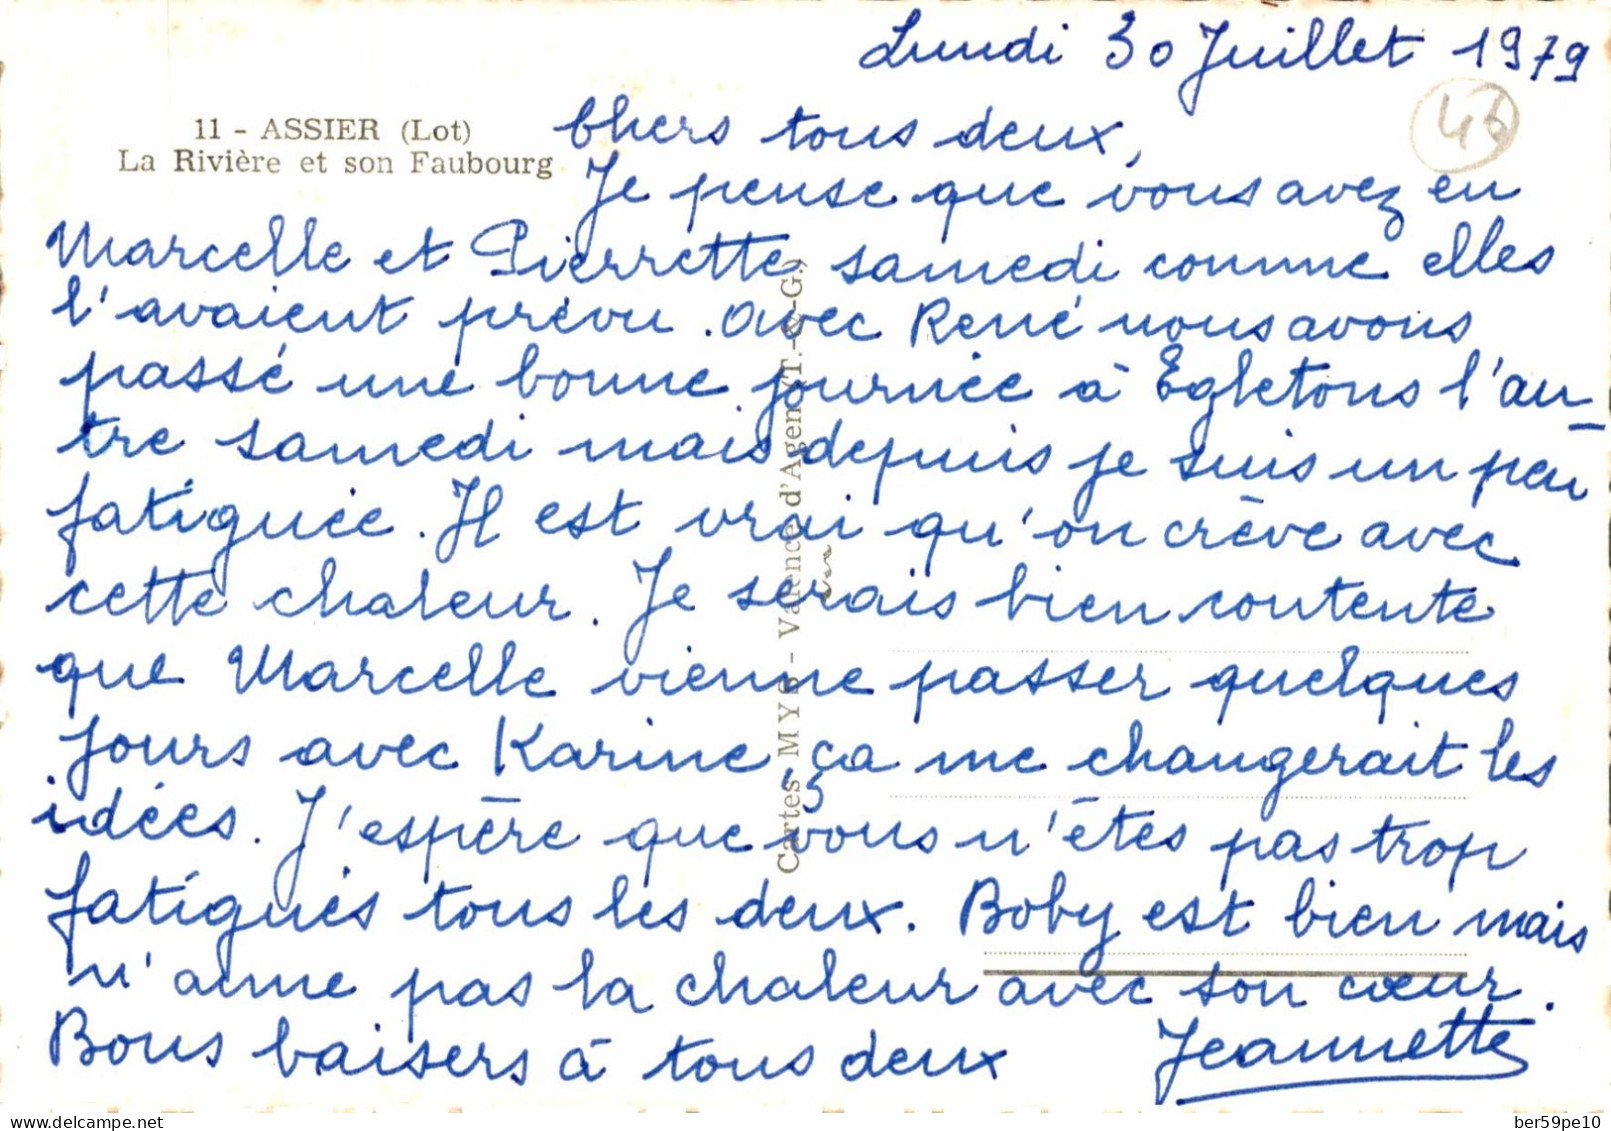 Lundi 30 Juillet 1979
46
11 - ASSIER (Lot)
La Rivière et son Faubourg
Chers tous deux,
Je pense que vous avez eu
Marcelle et Pierrette samedi comme elles
l'avaient prévu. Avec René nous avons
passé une bonne journée à Egletons l'au-
tre samedi mais depuis je suis un peu
fatiguée. Il est vrai qu'on crève avec
cette chaleur. Je serais bien contente
que Marcelle vienne passer quelques
jours avec Karine, ça me changerait les
idées. J'espère que vous n'êtes pas trop
fatigués tous les deux. Boby est bien mais
n'aime pas la chaleur avec son cœur.
Bons baisers à tous deux Jeannette
Cartes MYS - Valence d'Agen (T.-&-G.)
delcampe.net
ber59pe10